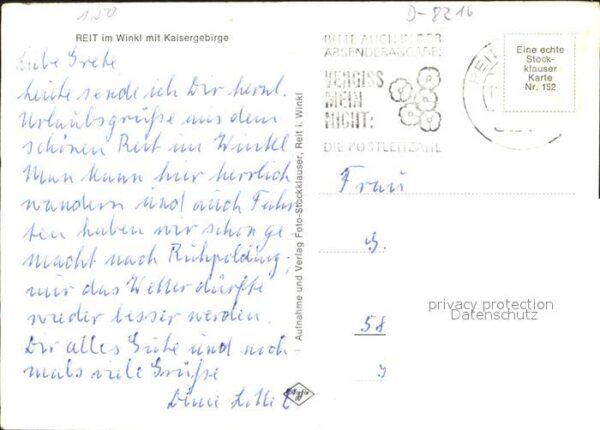 1,50
D-8216
REIT im Winkl mit Kaisergebirge
Liebe Grete
heute sende ich Dir herzl.
Urlaubsgrüße aus dem
schönen Reit im Winkel
Man kann hier herrlich
wandern und auch Fahr
ten haben wir schon ge-
macht nach Ruhpolding,
nur das Wetter dürfte
wieder besser werden.
Dir alles Gute und noch-
mals viele Grüße
Deine
Aufnahme und Verlag Foto-Stockklauser, Reit i. Winkl
BITTE AUCH IN DER
ABSENDERANGABE:
VERGISS
MEIN
NICHT:
DIE POSTLEITZAHL
REIT
Eine echte
Stock-
klauser
Karte
Nr. 152
Frau
58
privacy protection
Datenschutz
Agfa